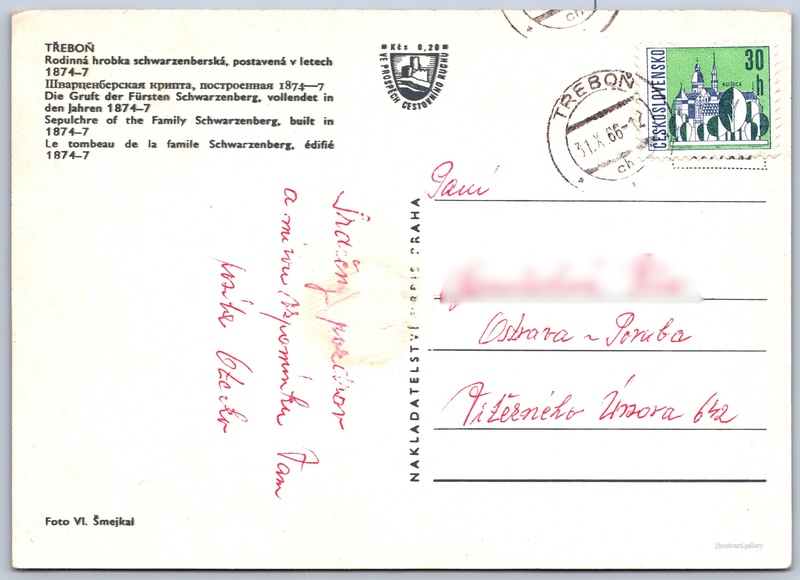 TŘEBOŇ
Rodinná hrobka schwarzenberská, postavená v letech
1874–7
Шварценберская крипта, построенная 1874—7
Die Gruft der Fürsten Schwarzenberg, vollendet in
den Jahren 1874–7
Sepulchre of the Family Schwarzenberg, built in
1874–7
Le tombeau de la famile Schwarzenberg, édifié
1874–7
Kčs 0,20
VE PROSPĚCH CESTOVNÍHO RUCHU
ch
TŘEBOŇ
31.X.66-12
ch
ČESKOSLOVENSKO
30
h
KOŠICE
Srdečný pozdrav
a milou vzpomínku Vám
NAKLADATELSTVÍ ORBIS PRAHA
Paní
Ostrava - Poruba
Vítězného Února 642
Foto Vl. Šmejkal
//postcard.gallery